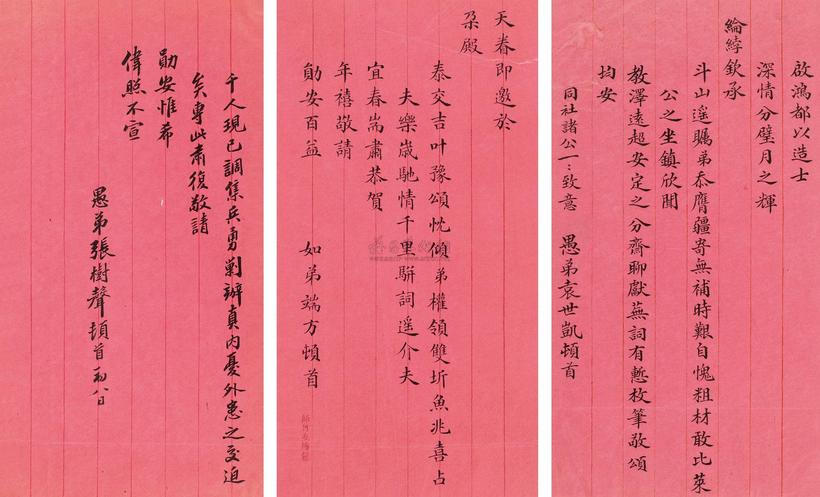 啟鴻都以造士
深情分璧月之輝
綸綍欽承
斗山遥瞩弟忝膺疆寄無補時艱自愧粗材敢比萊
公之坐鎮欣聞
教澤遠超安定之分齋聊獻蕪詞有慙枚筆敬頌
均安
同社諸公一:致意 愚弟袁世凱頓首
天春即邀於
朶殿
泰交吉叶豫頌忱傾弟權領雙圻魚兆喜占
夫樂歲馳情千里駢詞遥介夫
宜春耑肅恭賀
年禧敬請
勛安百益 如弟端方頓首
千人現已調集兵勇剿辦真内憂外患之交迫
矣專此肅復敬請
勛安惟希
偉照不宣
愚弟張樹聲頓首初八日